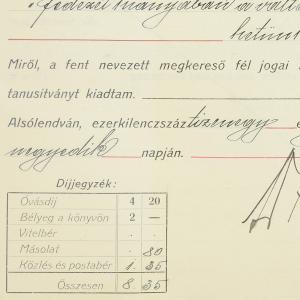 fedezet hiányában a vált
hetün
Miről, a fent nevezett megkereső fél jogai
tanusítványt kiadtam.
Alsólendván, ezerkilenczszáztizenegy
negyedik napján.
Díjjegyzék:
Óvásdíj 4 20
Bélyeg a könyvön 2 —
Vitelbér . .
Másolat . 80
Közlés és postabér 1. 35
Összesen 8. 35